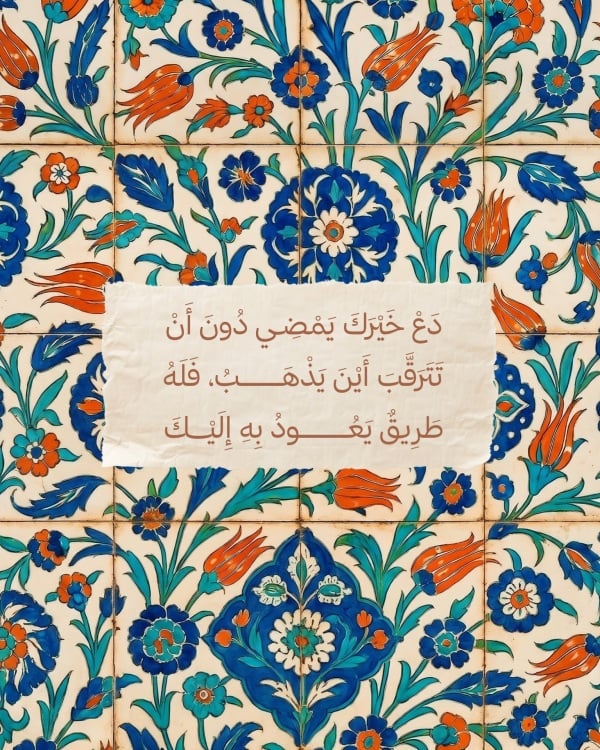 دَعْ خَيْرَكَ يَمْضِي دُونَ أَنْ
تَتَرَقَّبَ أَيْنَ يَذْهَـــــبُ، فَلَهُ
طَرِيقٌ يَعُـــــودُ بِهِ إِلَيْـكَ